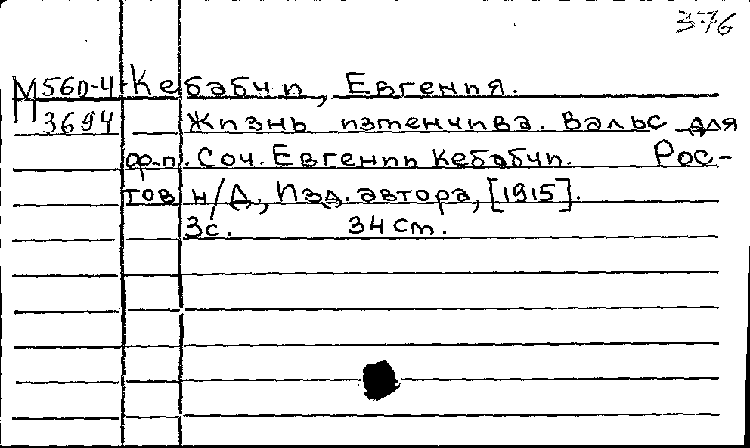 376
М 560-4 Кебабчи, Евгения.
П 3694 Жизнь изменчива. Вальс для
ф.-п. Соч. Евгении Кебабчи. Рос-
тов н/Д, Изд. автора, [1915].
3с. 34 см.